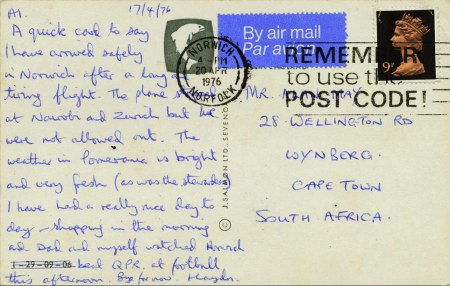 Al. 17/4/76
A quick card to say
I have arrived safely
in Norwich after a long
tiring flight. The plane
at Nairobi and Zurich but we
were not allowed out. The
weather in is bright
and very fresh (as was the stewardess)
I have had a really nice day to
day - shopping in the morning
and Dad and myself watched Norwich
1-29-09-06 beat QPR. at football
this afternoon. Bye for now. Haydn.
© J. SALMON LTD., SEVENO
By air mail
Par avion
NORWICH
4 - PM
20 APR
1976
NORFOLK
REMEMBER
to use the
POST CODE!
9P
MR. MAY
28 WELLINGTON RD
WYNBERG.
CAPE TOWN
SOUTH AFRICA.